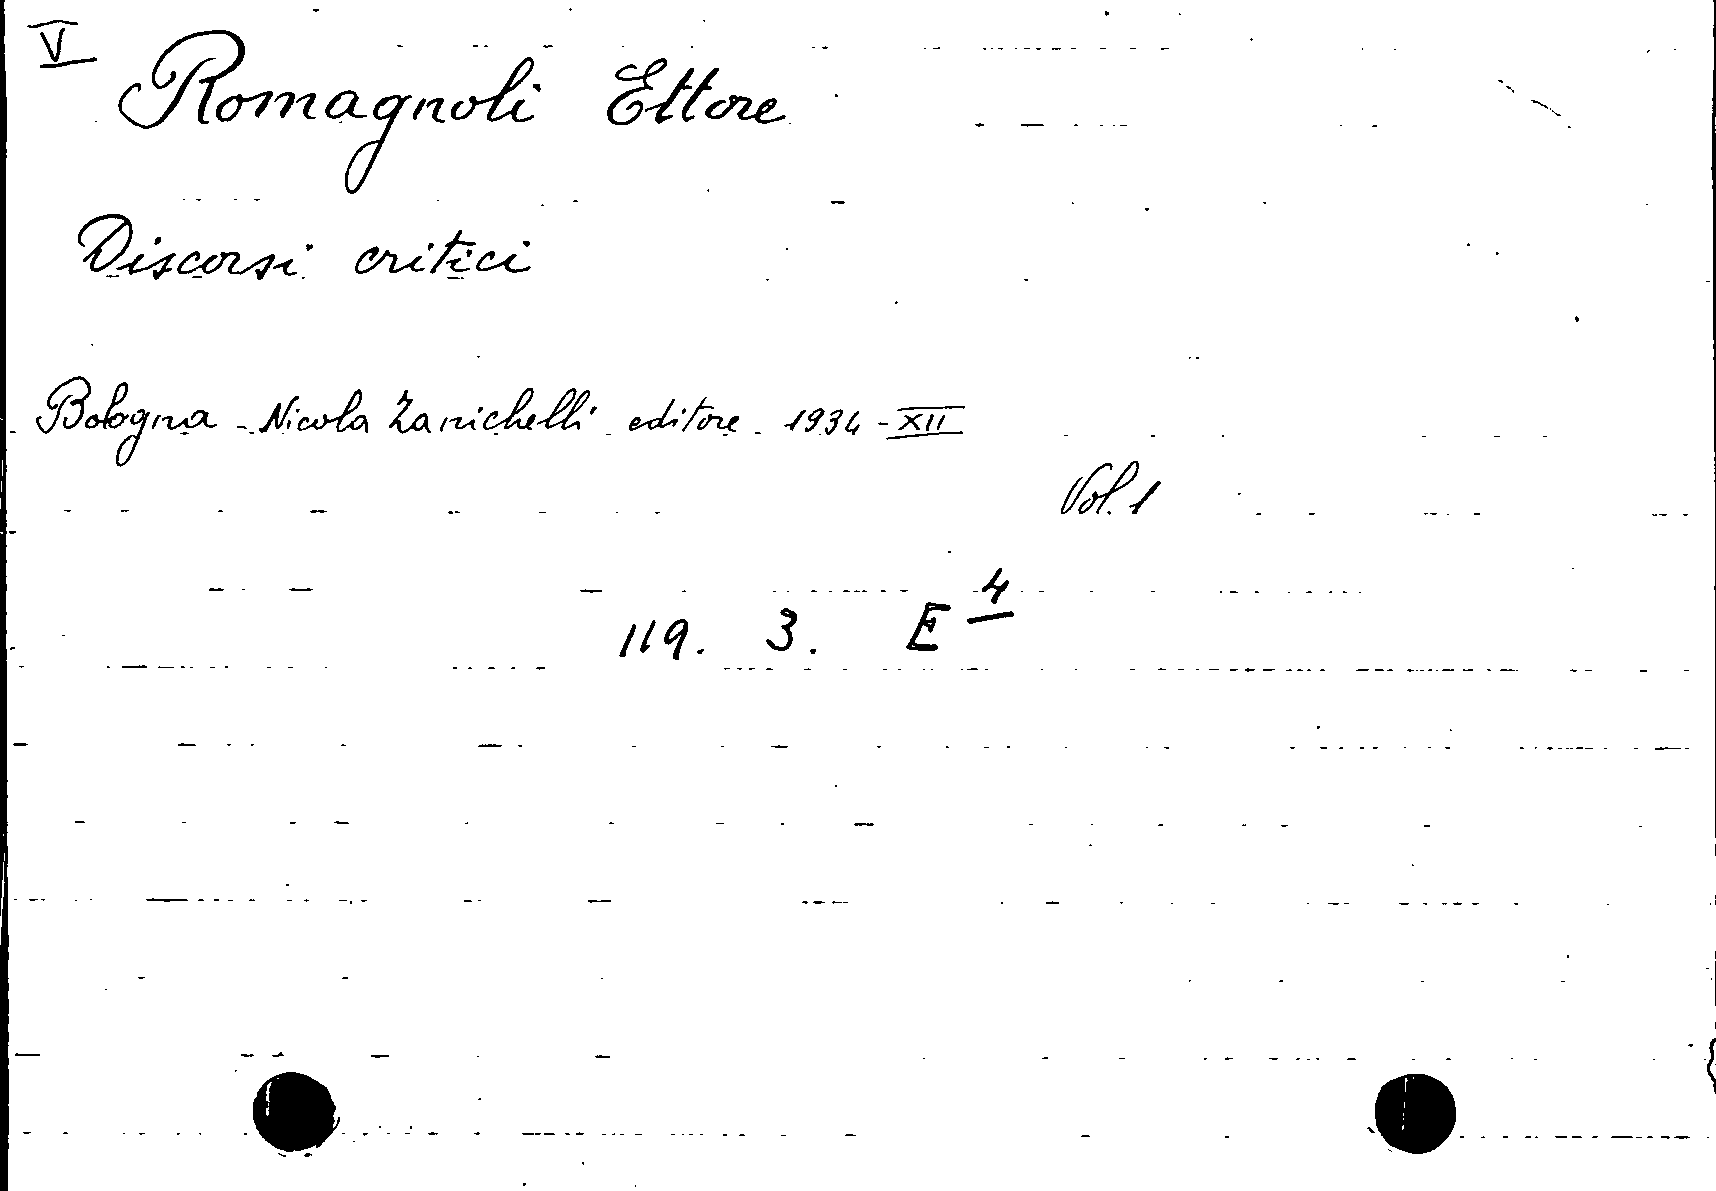 V
Romagnoli Ettore
Discorsi critici
Bologna - Nicola Zanichelli editore - 1934 - XII
Vol. 1
119. 3. E 4